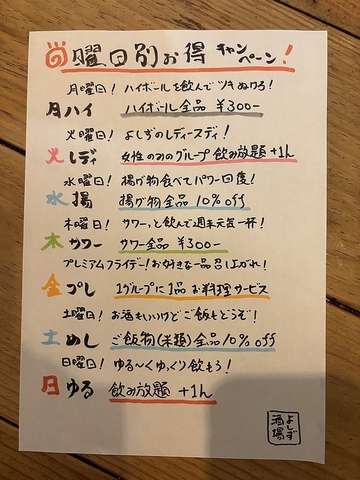 曜日別お得キャンペーン!
月曜日! ハイボールを飲んでツキぬけろ!
月ハイ ハイボール全品 ¥300-
火曜日! よしずのレディースディ!
火レディ 女性のみのグループ 飲み放題 +1h
水曜日! 揚げ物食べてパワー回復!
水揚 揚げ物全品 10% off
木曜日! サワーっと飲んで週末元気一杯!
木サワー サワー全品 ¥300-
プレミアムフライデー!お好きな一品召し上がれ!
金プレ 1グループに1品 お料理サービス
土曜日! お酒もいいけど ご飯もどうぞ!
土めし ご飯物(米類)全品10% off
日曜日! ゆる〜くゆっくり飲もう!
日ゆる 飲み放題 +1h
よしず酒場